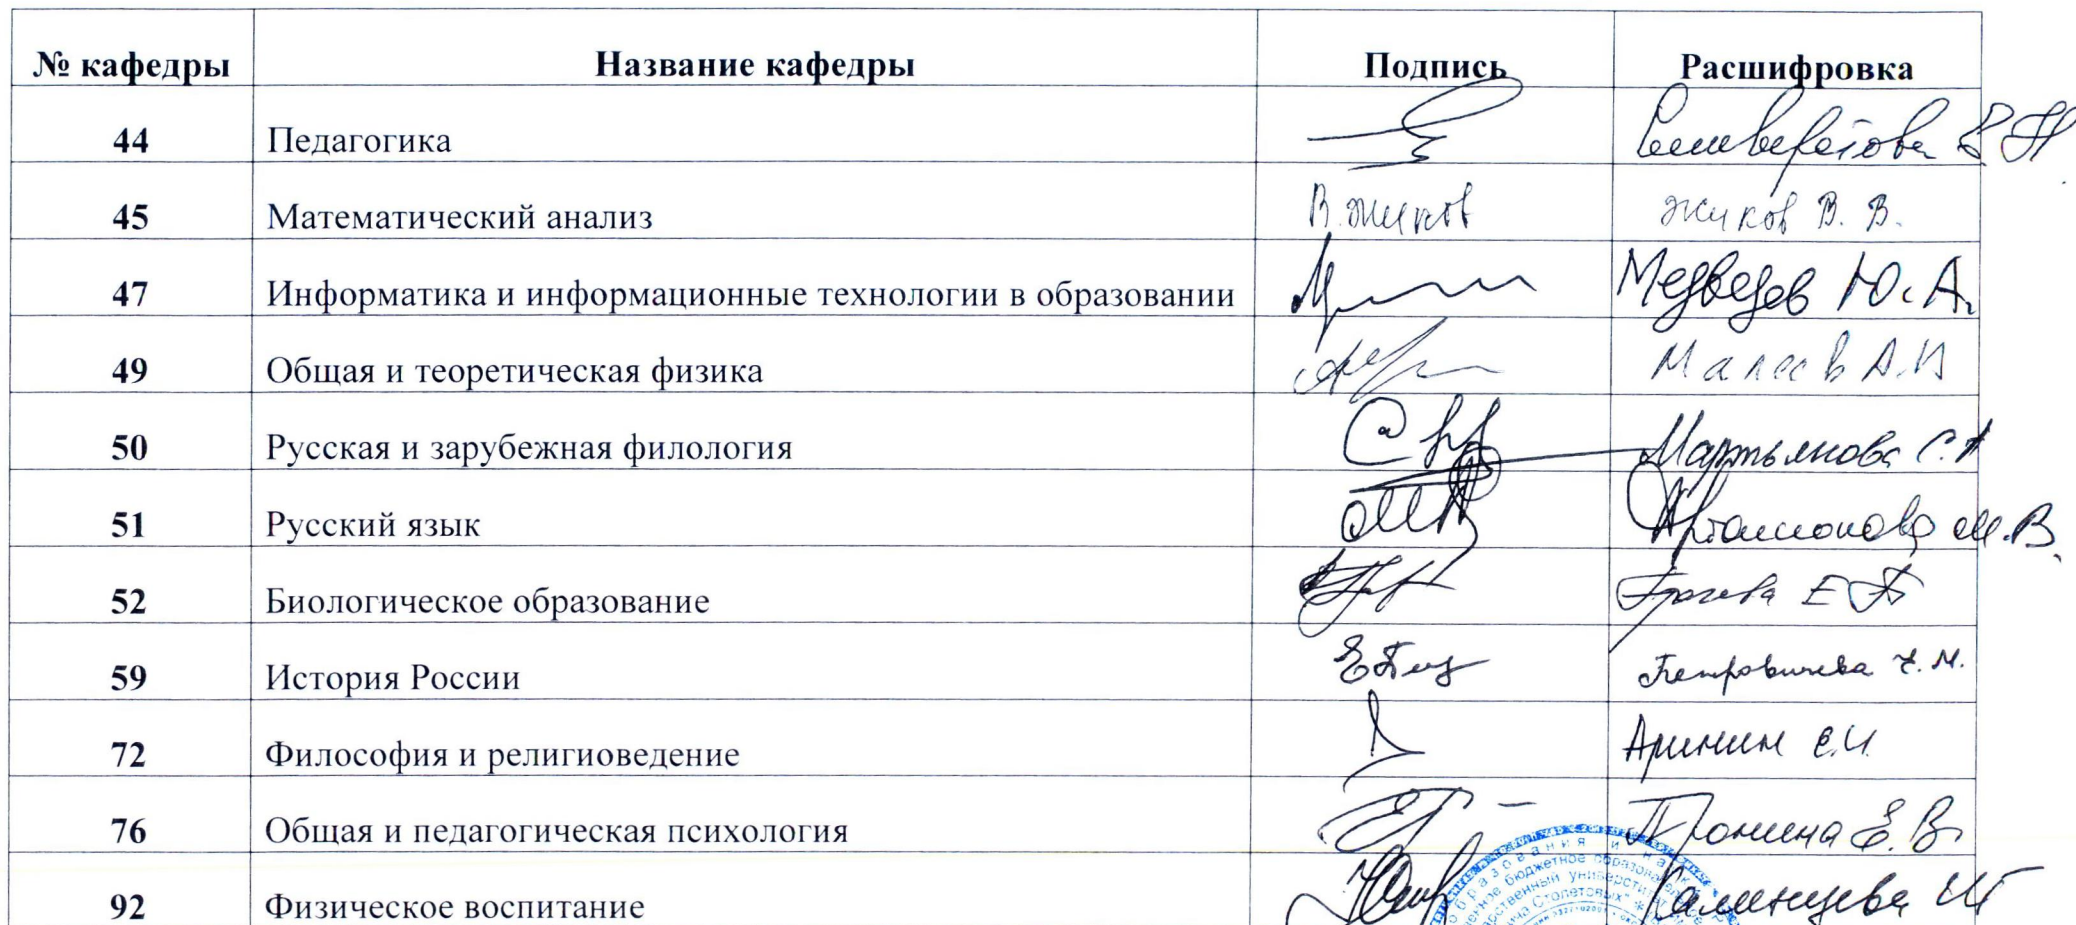 № кафедры Название кафедры Подпись Расшифровка
44 Педагогика Селиверстова Е Н
45 Математический анализ В. Жиков Жиков В. В.
47 Информатика и информационные технологии в образовании Медведев Ю. А.
49 Общая и теоретическая физика Малеев А.В
50 Русская и зарубежная филология Мартьянова С. А
51 Русский язык Артамонова М.В.
52 Биологическое образование Грачева Е П
59 История России Петровичева Е.М.
72 Философия и религиоведение Аринин Е.И.
76 Общая и педагогическая психология Пронина Е.В.
92 Физическое воспитание
образования и нау
бюджетное образова
университет
Столетовых"